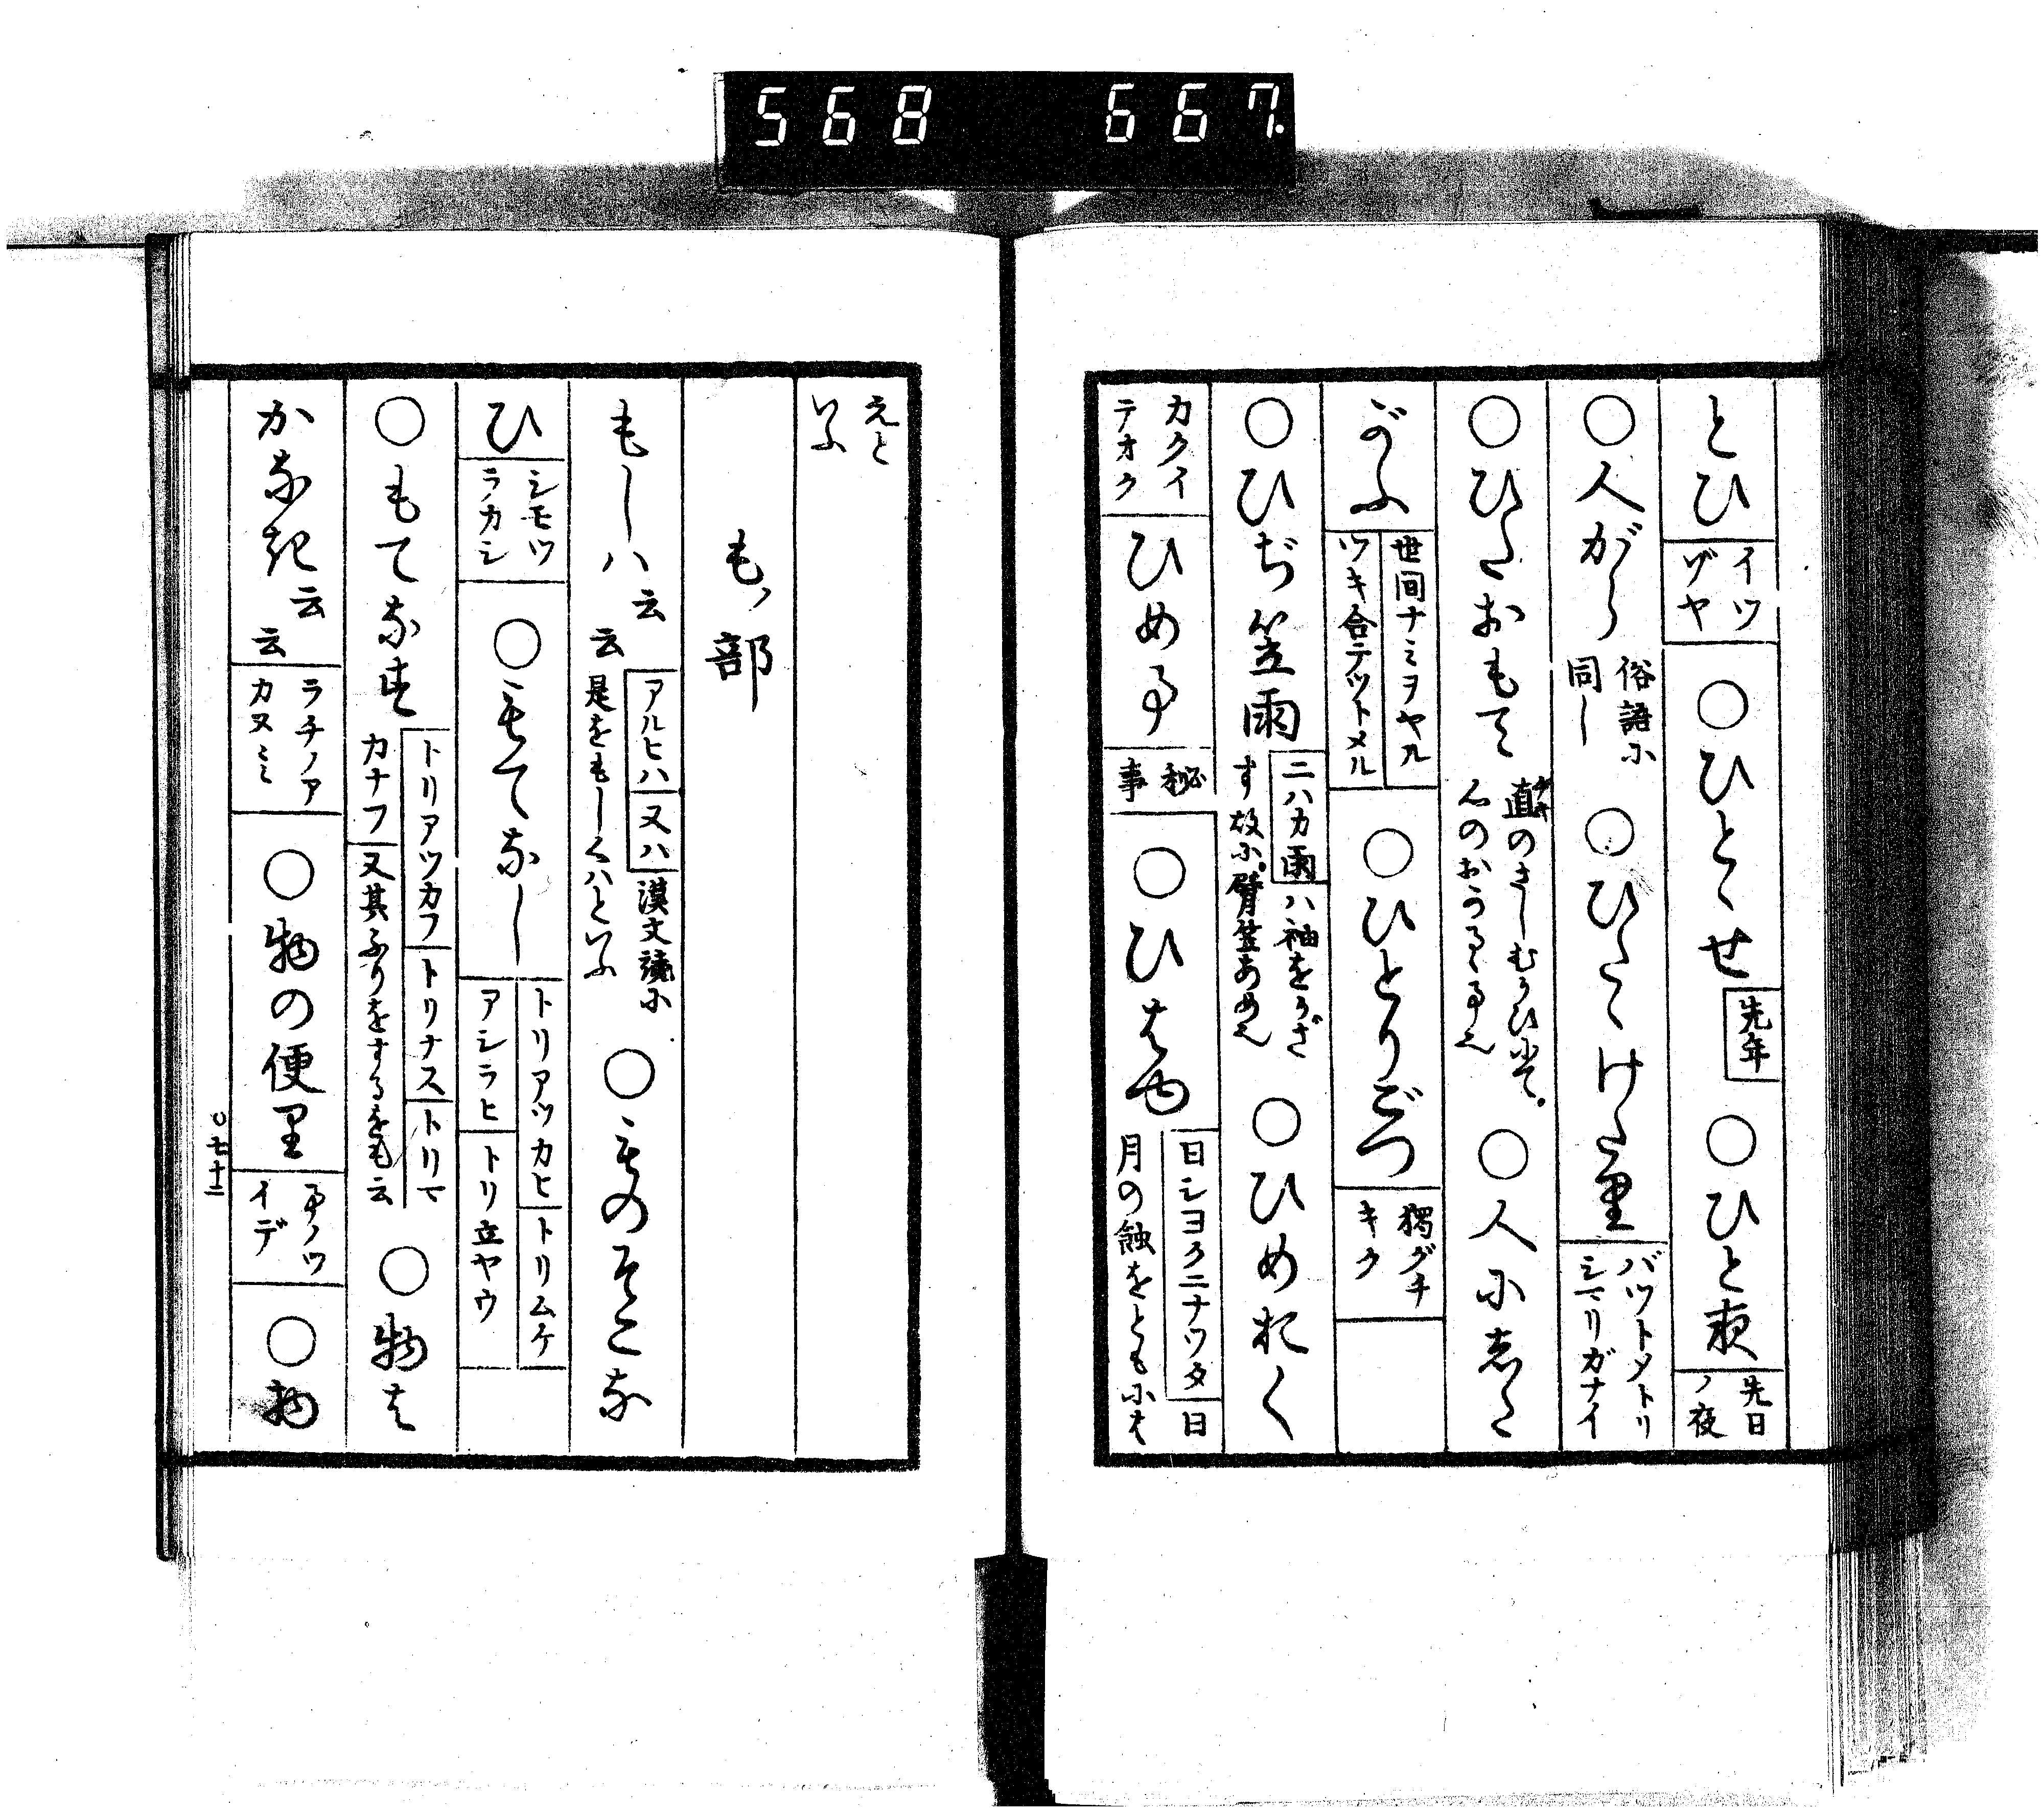 568 667.
とひ イツゾヤ ○ひとゝせ 先年 ○ひと夜 先日ノ夜
○人がら 俗語に同し ○ひたゝけたり バツトメトリシマリガナイ
○ひたおもて 直のさしむかひにて。 ○人に志た
がふ 世間ナミヲヤル ツキ合テツトメル ○ひとりごつ 獨グチキク
○ひぢ笠雨 ニハカ雨 ハ袖をかざす故に。臂笠あめ也 ○ひめおく
カクイテオク ひめ事 秘事 ○ひはも 日シヨクニナツタ 日月の蝕をともには
えといふ
もノ部
もしハ云云 アルヒハ 又ハ 漢文読に是をもしくハといふ ○ものそこな
ひ シモツラカシ ○もてなし トリアツカヒ トリムケ アシラヒ トリ立ヤウ
○もてなす トリアツカフ トリナス トリマカナフ 又其ふりをするをも云 ○物は
かなき云云 ラチノアカヌミ ○物の便里 事ノツイデ ○物
○七十二